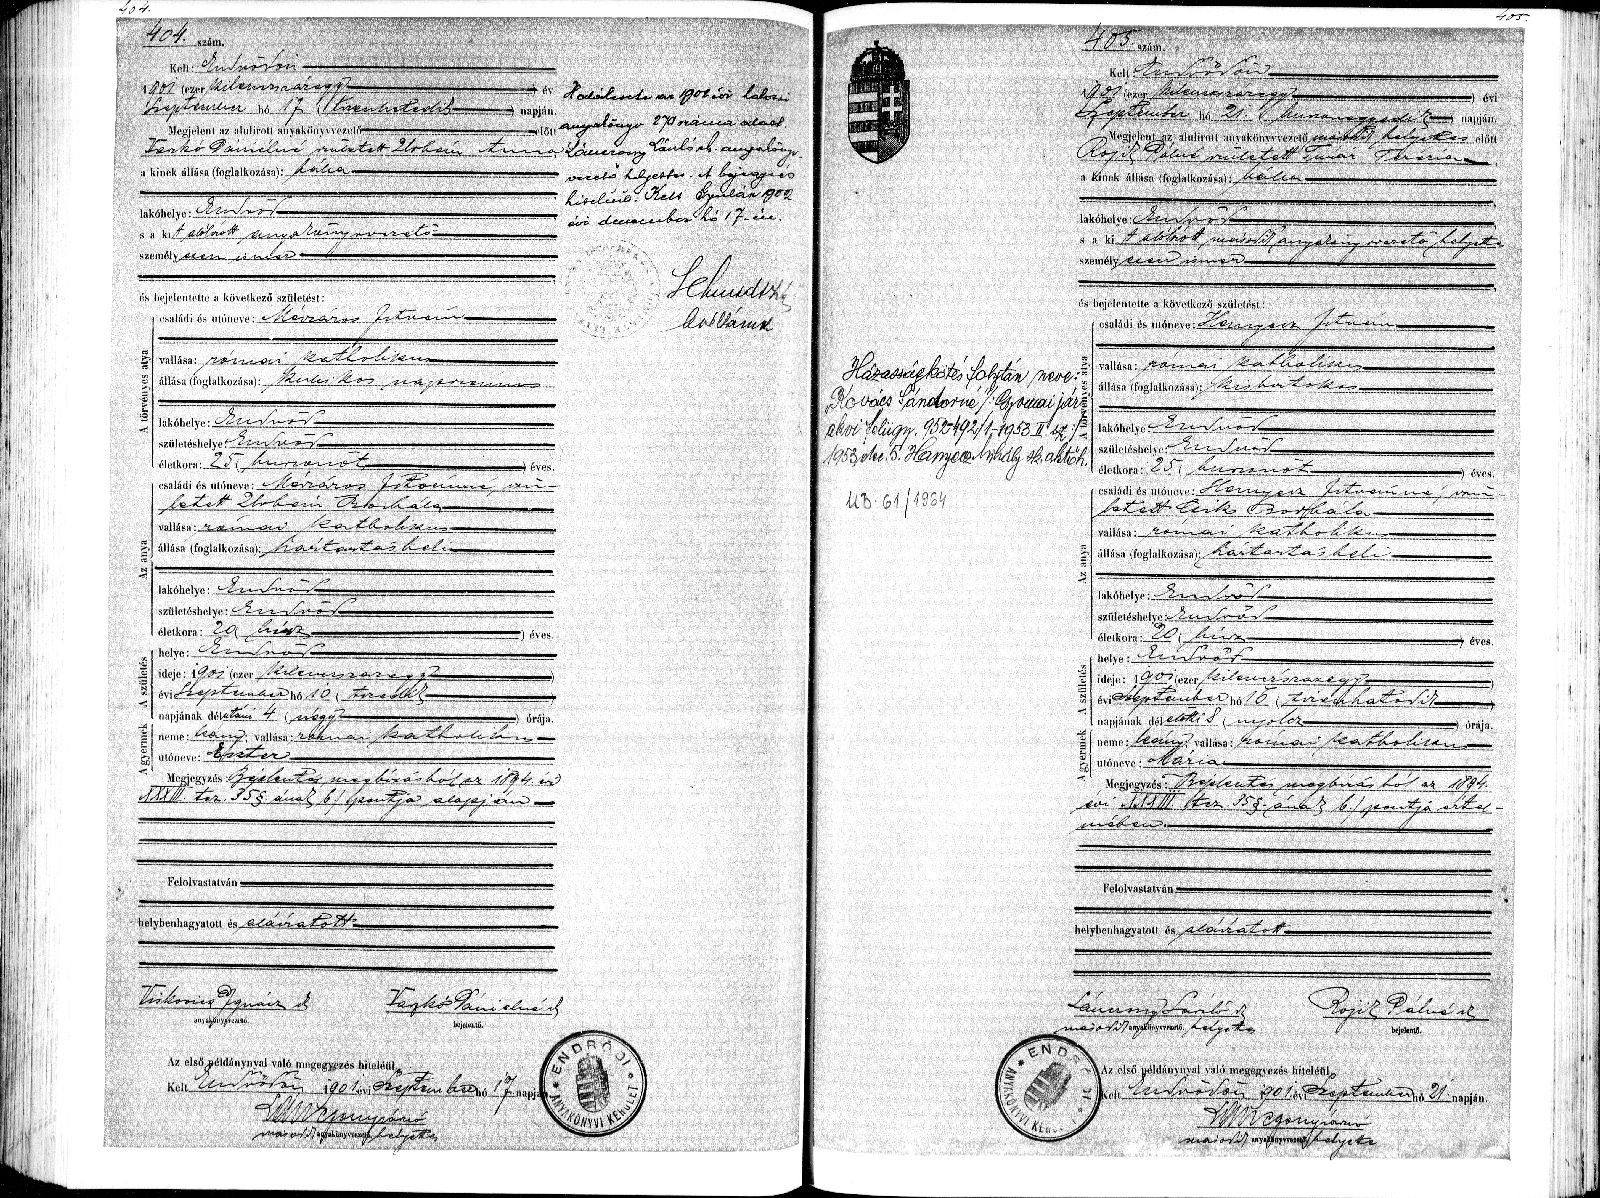 404.
404. szám.
Kelt: Endrődön
1901 (ezer kilenczszázegy) év
Szeptember hó 17 (tizenhetedik) napján.
Megjelent az alulirott anyakönyvvezető előtt
Varkó Dánielné született Anna
a kinek állása (foglalkozása): bába
lakóhelye: Endrőd
s a kit alólirott anyakönyvvezető
személyesen ismer
és bejelentette a következő születést:
A törvényes atya
családi és utóneve: Mészáros István
vallása: római katholikus
állása (foglalkozása): kubikos napszámos
lakóhelye: Endrőd
születéshelye: Endrőd
életkora: 25 (huszonöt) éves.
Az anya
családi és utóneve: Mészáros Istvánné, szü-
letett Borbála
vallása: római katholikus
állása (foglalkozása): háztartásbeli
lakóhelye: Endrőd
születéshelye: Endrőd
életkora: 20 (húsz) éves.
A születés
helye: Endrőd
ideje: 1901 (ezer kilenczszázegy)
évi Szeptember hó 10 (tizedik)
napjának délutáni 4 (négy) órája.
A gyermek
neme: leány, vallása: római katholikus
utóneve: Eszter
Megjegyzés Bejelentés megbizásból az 1894. évi
XXXIII. tcz. 35§ának b/ pontja alapján
Felolvastatván
helybenhagyatott és aláiratott
Ignácz
anyakönyvvezető.
Varkó Dánielné
bejelentő.
Az első példánynyal való megegyezés hiteléül.
Kelt Endrődön 1901 évi Szeptember hó 17 napján
másodk anyakönyvvezető helyettes
ENDRŐDI ANYAKÖNYVI KERÜLET
Haláleste az 1902 évi halotti
anyakönyv 270 száma alatt
Lánczony László anyakönyv-
vezető helyettes. A bejegyzés
hiteléül. Kelt Gyulán 1902
évi deczember hó 17-én.
405.
405. szám.
Kelt Endrődön
1901 (ezer kilenczszázegy) évi
Szeptember hó 21 (huszonegyedik) napján.
Megjelent az alulirott anyakönyvvezető második helyettes előtt
Rojik Pálné született Timár Terézia
a kinek állása (foglalkozása): bába
lakóhelye: Endrőd
s a kit alólirott második anyakönyvvezető helyettes
személyesen ismer
és bejelentette a következő születést:
A törvényes atya
családi és utóneve: Hanyecz István
vallása: római katholikus
állása (foglalkozása): kisbirtokos
lakóhelye: Endrőd
születéshelye: Endrőd
életkora: 25 (huszonöt) éves.
Az anya
családi és utóneve: Hanyecz Istvánné, szü-
letett Borbála
vallása: római katholikus
állása (foglalkozása): háztartásbeli
lakóhelye: Endrőd
születéshelye: Endrőd
életkora: 20 (húsz) éves.
A születés
helye: Endrőd
ideje: 1901 (ezer kilenczszázegy)
évi Szeptember hó 16 (tizenhatodik)
napjának délelőtti 8 (nyolcz) órája.
A gyermek
neme: leány, vallása: római katholikus
utóneve: Mária
Megjegyzés: Bejelentés megbizásból az 1894.
évi XXXIII. tcz. 35§-ának b/ pontja értel-
mében.
Felolvastatván
helybenhagyatott és aláiratott
Lánczony László
másodk anyakönyvvezető helyettes
Rojik Pálné
bejelentő.
Az első példánynyal való megegyezés hiteléül.
Kelt Endrődön 1901 évi Szeptember hó 21 napján.
másodk anyakönyvvezető helyettes
ENDRŐDI ANYAKÖNYVI KERÜLET
Házasságkötés folytán neve:
"Kovács Sándorné" /: Gyomai jár.
akvi felügy. 952492/1-1953 II sz:/
1953 dec 5. Hanyecz Mihály
UB. 61/1964